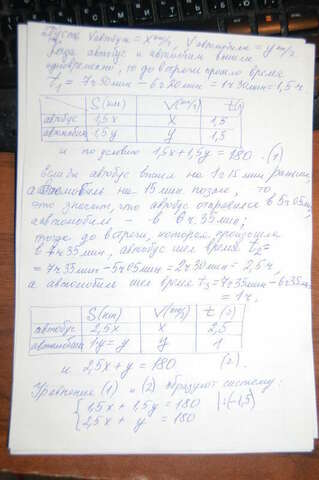 Пусть Vавтобуса = x км/ч, Vавтомобиля = y км/ч
Тогда автобус и автомобиль вышли
одновременно, то до встречи прошло время
t₁ = 7ч30мин − 6ч20мин = 1ч30мин = 1,5ч
S(км) V(км/ч) t(ч)
автобус 1,5x x 1,5
автомобиль 1,5y y 1,5
и по условию 1,5x + 1,5y = 180 (1)
Если бы автобус вышел на 1ч15мин раньше,
а автомобиль на 15мин позже, то
это значит, что автобус отправился в 5ч05мин,
автомобиль – в 6ч35мин;
тогда до встречи, которая произошла
в 7ч35мин, автобус шел время t₂=
= 7ч35мин − 5ч05мин = 2ч30мин = 2,5ч,
а автомобиль шел время t₃ = 7ч35мин − 6ч35мин
= 1ч.
S(км) V(км/ч) t(ч)
автобус 2,5x x 2,5
автомобиль 1y = y y 1
и 2,5x + y = 180 (2).
Уравнения (1) и (2) образуют систему:
{1,5x + 1,5y = 180 |:(−1,5)
{2,5x + y = 180